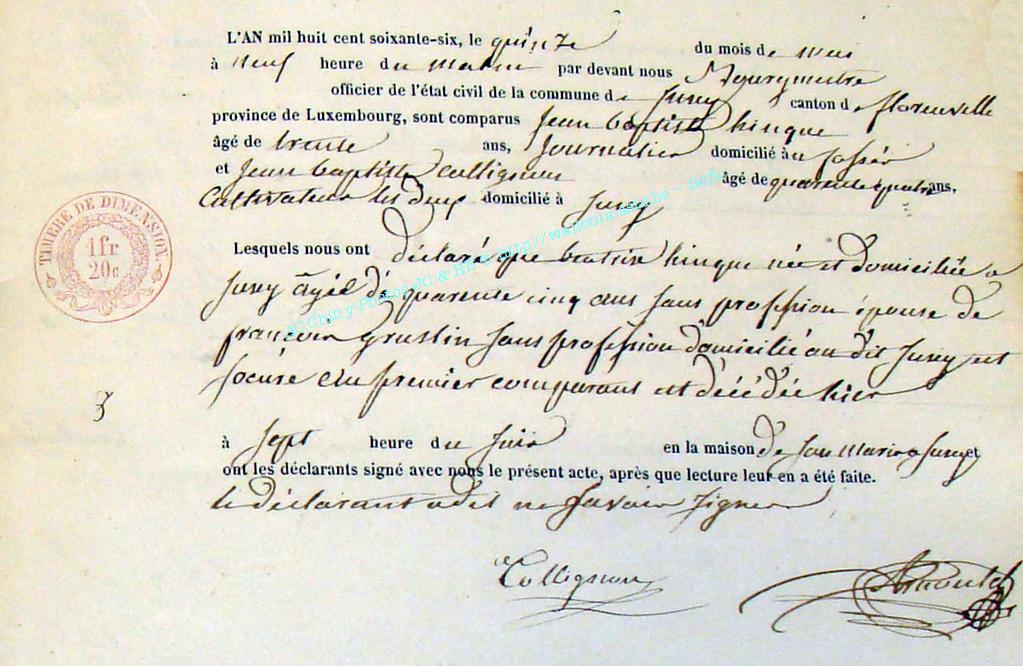 L'AN mil huit cent soixante-six, le quinze du mois de mai
à neuf heure du matin par devant nous Bourgmestre
officier de l'état civil de la commune de Suxy canton de florenville
province de Luxembourg, sont comparus Jean baptiste hinque
âgé de trente ans, Journalier domicilié à
et Jean baptiste Collignon âgé de quarante quatre ans,
Cultivateur les deux domicilié à Suxy
Lesquels nous ont déclaré que beatrixe hinque née et domiciliée a
Suxy âgée de quarente cinq ans sans profession épouse de
françois Gruslin sans profession domicilié au dit Suxy et
soeure du premier comparant est décédée hier
à sept heure du soir en la maison de son Marie a Suxy et
ont les déclarants signé avec nous le présent acte, après que lecture leur en a été faite.
le déclarant a dit ne savoir signer
Collignon
TIMBRE DE DIMENSION.
1fr
20c
AC Chiny Photos JC & HB © http//wallonia-asbl.be - Geneal